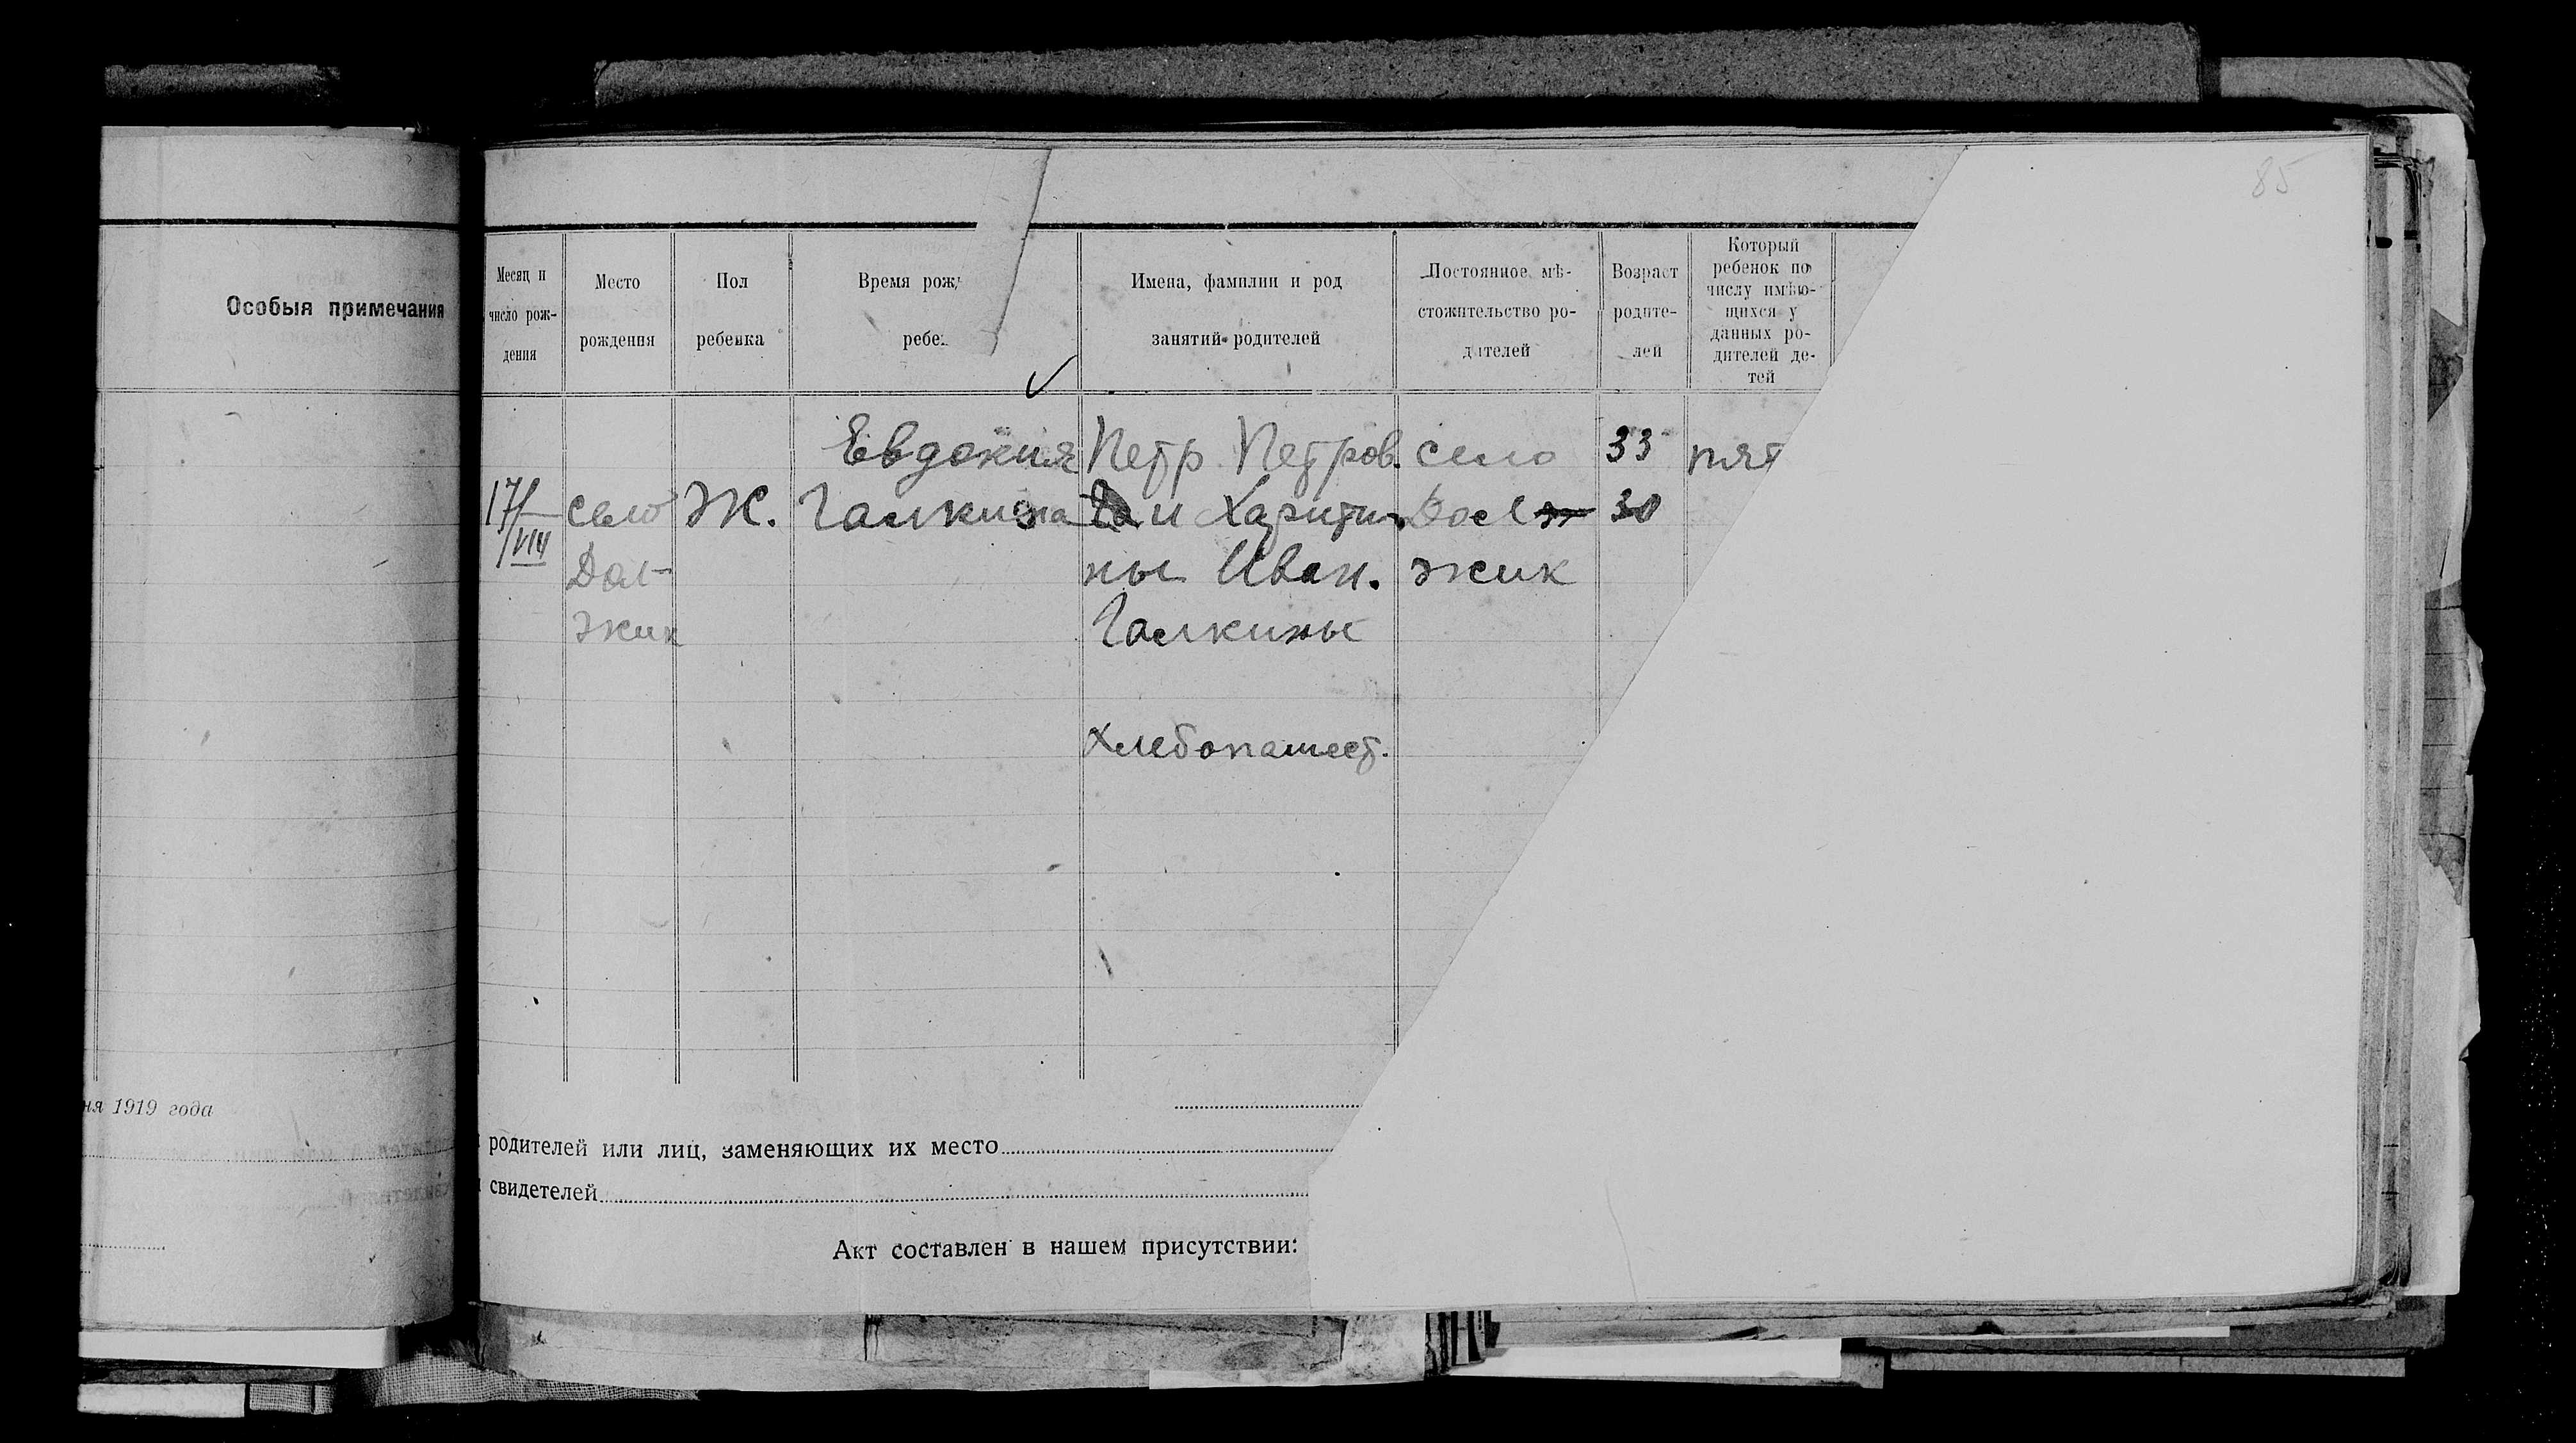 85
Особыя примечания
Месяц и
число рож-
дения
Место
рождения
Пол
ребенка
Время рож
ребе
Имена, фамилии и род
занятий родителей
Постоянное мѣ-
стожительство ро-
дителей
Возраст
родите-
лей
Который
ребенок по
числу имѣю-
щихся у
данных ро-
дителей де-
тей
17/VIII
село
Дол-
жик
Ж.
Евдокия
Галкина
Петр Петров.
и Харити
ны Иван.
Галкины
Хлебопашест.
село
Дол
жик
33
30
пят
ня 1919 года
родителей или лиц, заменяющих их место
свидетелей
Акт составлен в нашем присутствии: